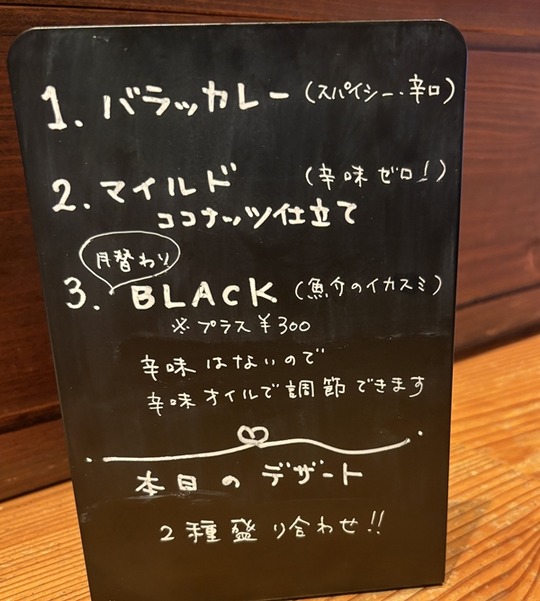 1. バラッカレー (スパイシー・辛口)
2. マイルド (辛味ゼロ!)
ココナッツ仕立て
月替わり
3. BLACK (魚介のイカスミ)
※プラス¥300
辛味はないので
辛味オイルで調節できます
本日のデザート
2種盛り合わせ!!